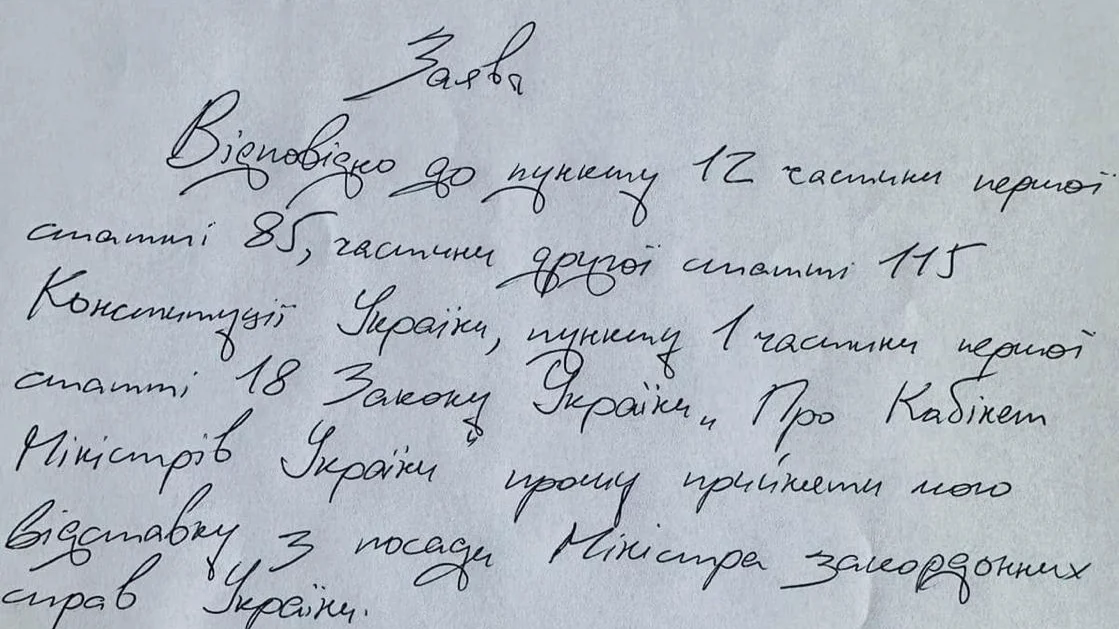 Заява
Відповідно до пункту 12 частини першої
статті 85, частини другої статті 115
Конституції України, пункту 1 частини першої
статті 18 Закону України „Про Кабінет
Міністрів України" прошу прийняти мою
відставку з посади Міністра закордонних
справ України.